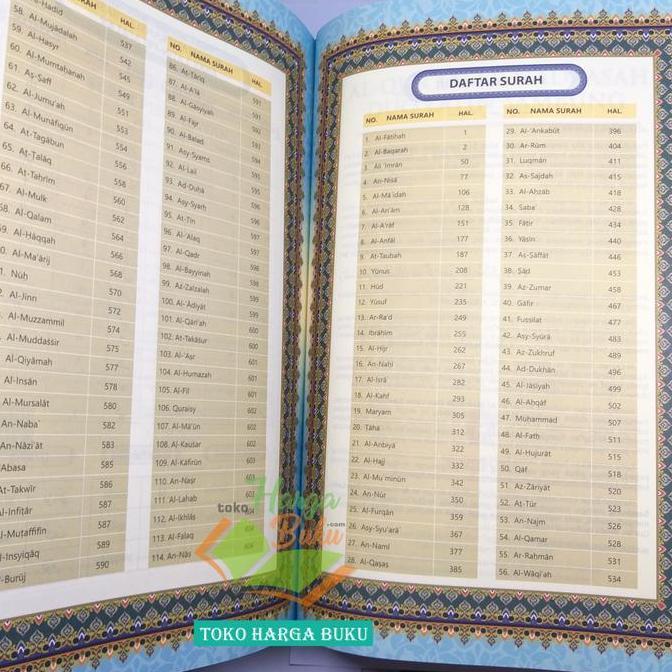 AH HAL.
Al-Hadid 537
58. Al-Mujādalah 542
59. Al-Hasyr 545
60. Al-Mumtaḥanah 549
61. Aṣ-Ṣaff 551
62. Al-Jumu'ah 553
63. Al-Munāfiqūn 554
64. At-Tagābun 556
65. Aṭ-Ṭalāq 558
66. At-Taḥrīm 560
67. Al-Mulk 562
68. Al-Qalam 564
Al-Ḥāqqah 566
Al-Ma'ārij 568
Nūḥ 570
Al-Jinn 572
Al-Muzzammil 574
Al-Muddaṡṡir 575
Al-Qiyāmah 577
Al-Insān 578
Al-Mursalāt 580
An-Naba` 582
An-Nāzi'āt 583
Abasa 585
At-Takwīr 586
Al-Infiṭār 587
Al-Muṭaffifīn 587
Al-Insyiqāq 589
Al-Burūj 590
NO. NAMA SURAH HAL.
86. Aṭ-Ṭāriq 591
87. Al-A'lā 591
88. Al-Gāsyiyah 592
89. Al-Fajr 593
90. Al-Balad 594
91. Asy-Syams 595
92. Al-Lail 595
93. Aḍ-Ḍuḥā 596
94. Asy-Syarḥ 596
95. At-Tīn 597
96. Al-`Alaq 597
97. Al-Qadr 598
98. Al-Bayyinah 598
99. Az-Zalzalah 599
100. Al-`Ādiyāt 599
101. Al-Qāri'ah 600
102. At-Takāṡur 600
103. Al-`Aṣr 601
104. Al-Humazah 601
105. Al-Fīl 601
106. Quraisy 602
107. Al-Mā'ūn 602
108. Al-Kauṡar 602
109. Al-Kāfirūn 603
110. An-Naṣr 603
111. Al-Lahab 603
112. Al-Ikhlāṣ 604
113. Al-Falaq 604
114. An-Nās 604
DAFTAR SURAH
NO. NAMA SURAH HAL.
1. Al-Fātiḥah 1
2. Al-Baqarah 2
3. Āli `Imrān 50
4. An-Nisā 77
5. Al-Mā`idah 106
6. Al-An'ām 128
7. Al-A'rāf 151
8. Al-Anfāl 177
9. At-Taubah 187
10. Yūnus 208
11. Hūd 221
12. Yūsuf 235
13. Ar-Ra'd 249
14. Ibrāhīm 255
15. Al-Ḥijr 262
16. An-Naḥl 267
17. Al-Isrā` 282
18. Al-Kahf 293
19. Maryam 305
20. Ṭāhā 312
21. Al-Anbiyā 322
22. Al-Ḥajj 332
23. Al-Mu`minūn 342
24. An-Nūr 350
25. Al-Furqān 359
26. Asy-Syu'arā` 367
27. An-Naml 377
28. Al-Qaṣaṣ 385
NO. NAMA SURAH HAL.
29. Al-`Ankabūt 396
30. Ar-Rūm 404
31. Luqmān 411
32. As-Sajdah 415
33. Al-Aḥzāb 418
34. Saba` 428
35. Fāṭir 434
36. Yāsīn 440
37. Aṣ-Ṣāffāt 446
38. Ṣād 453
39. Az-Zumar 458
40. Gāfir 467
41. Fuṣṣilat 477
42. Asy-Syūrā 483
43. Az-Zukhruf 489
44. Ad-Dukhān 496
45. Al-Jāṡiyah 499
46. Al-Aḥqāf 502
47. Muḥammad 507
48. Al-Fatḥ 511
49. Al-Ḥujurāt 515
50. Qāf 518
51. Aż-Żāriyāt 520
52. Aṭ-Ṭūr 523
53. An-Najm 526
54. Al-Qamar 528
55. Ar-Raḥmān 531
56. Al-Wāqi'ah 534
toko
Harga
Buku
.com
TOKO HARGA BUKU